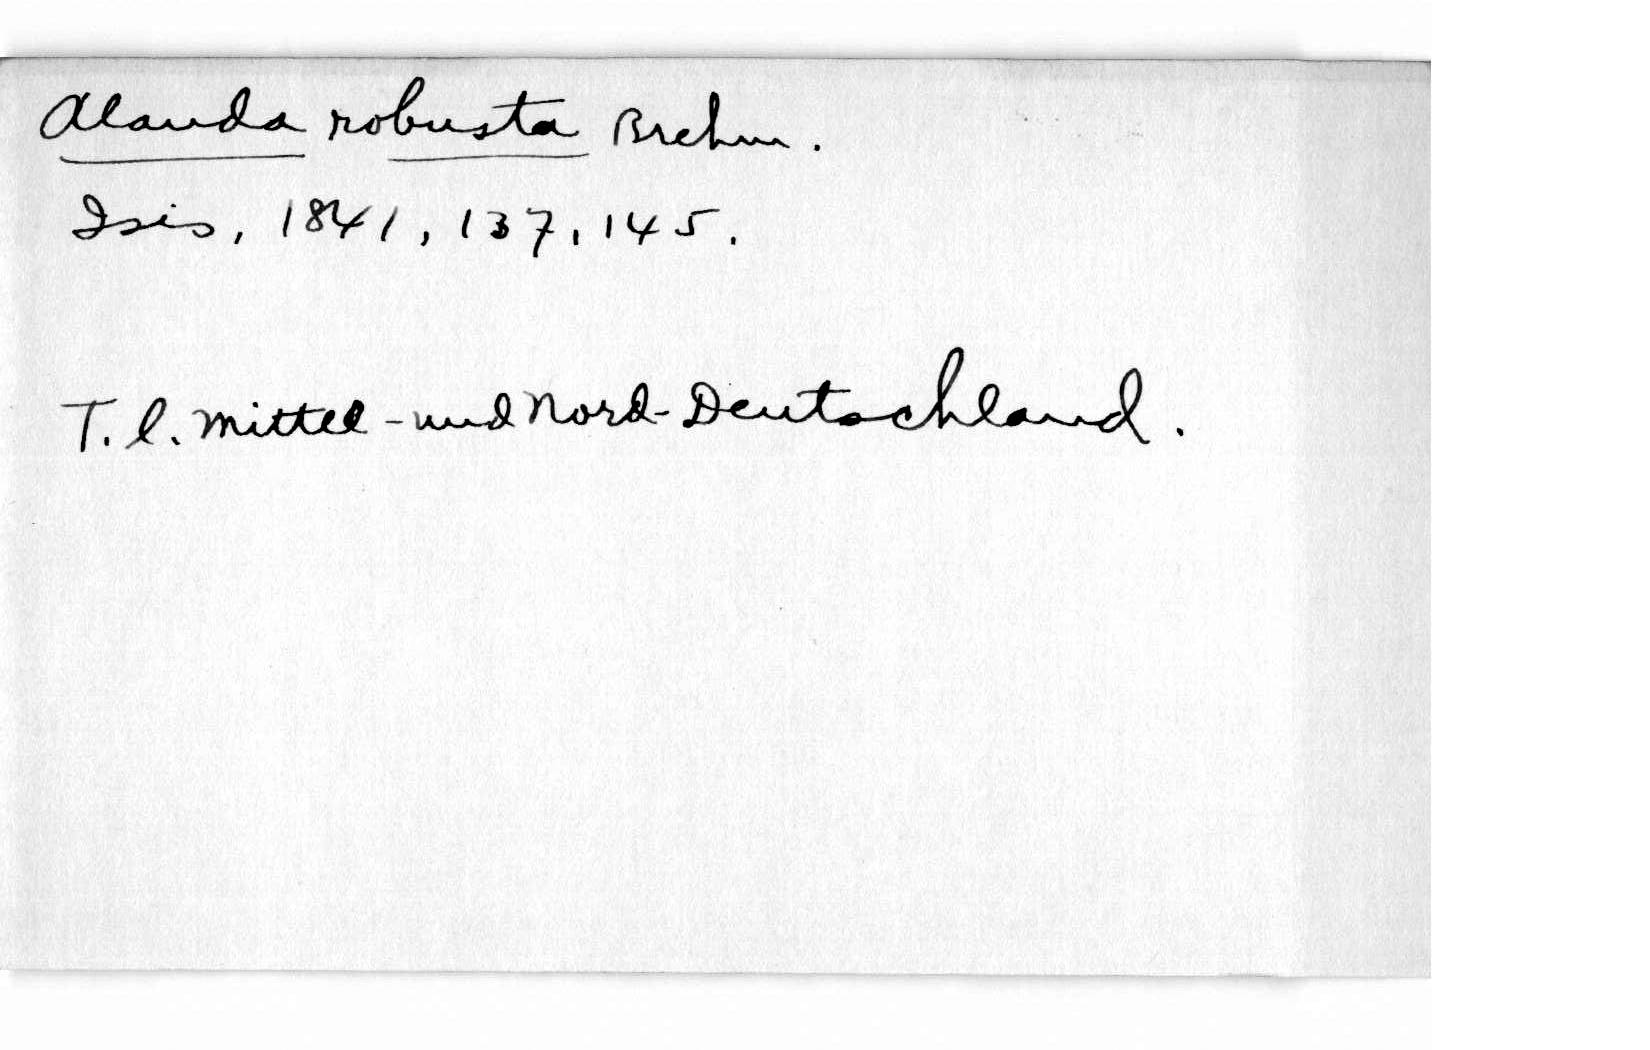 Alauda robusta Brehm.
Isis, 1841, 137, 145.
T. l. Mittel-und Nord-Deutschland.